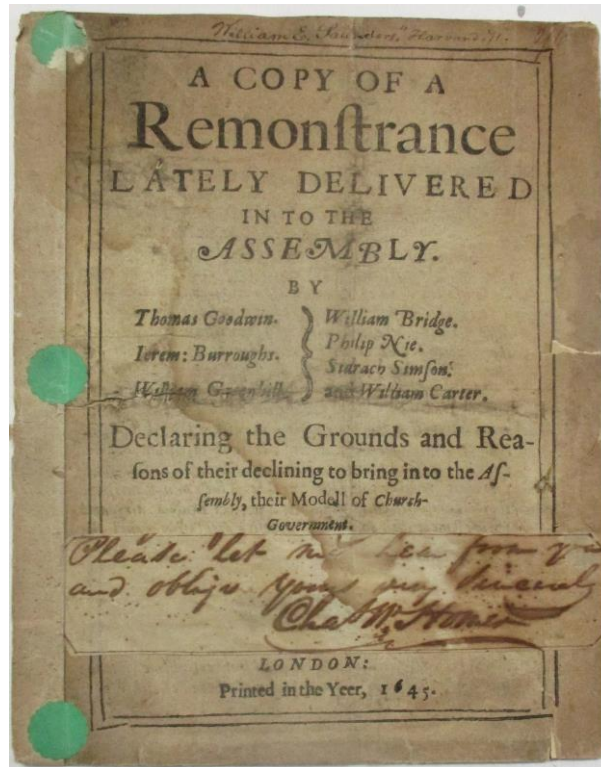 William E. Saunders. Harvard
A COPY OF A
Remonſtrance
LATELY DELIVERED
IN TO THE
ASSEMBLY.
BY
Thomas Goodwin.
Ierem: Burroughs.
William Greenhill.
William Bridge.
Philip Nie.
Sidrach Simſon.
and William Carter.
Declaring the Grounds and Rea-
ſons of their declining to bring in to the Aſ-
ſembly, their Modell of Church-
Government.
Please let me hear from you
and oblige yours very Sincerely
Chas W. Homer
LONDON:
Printed in the Yeer, 1645.